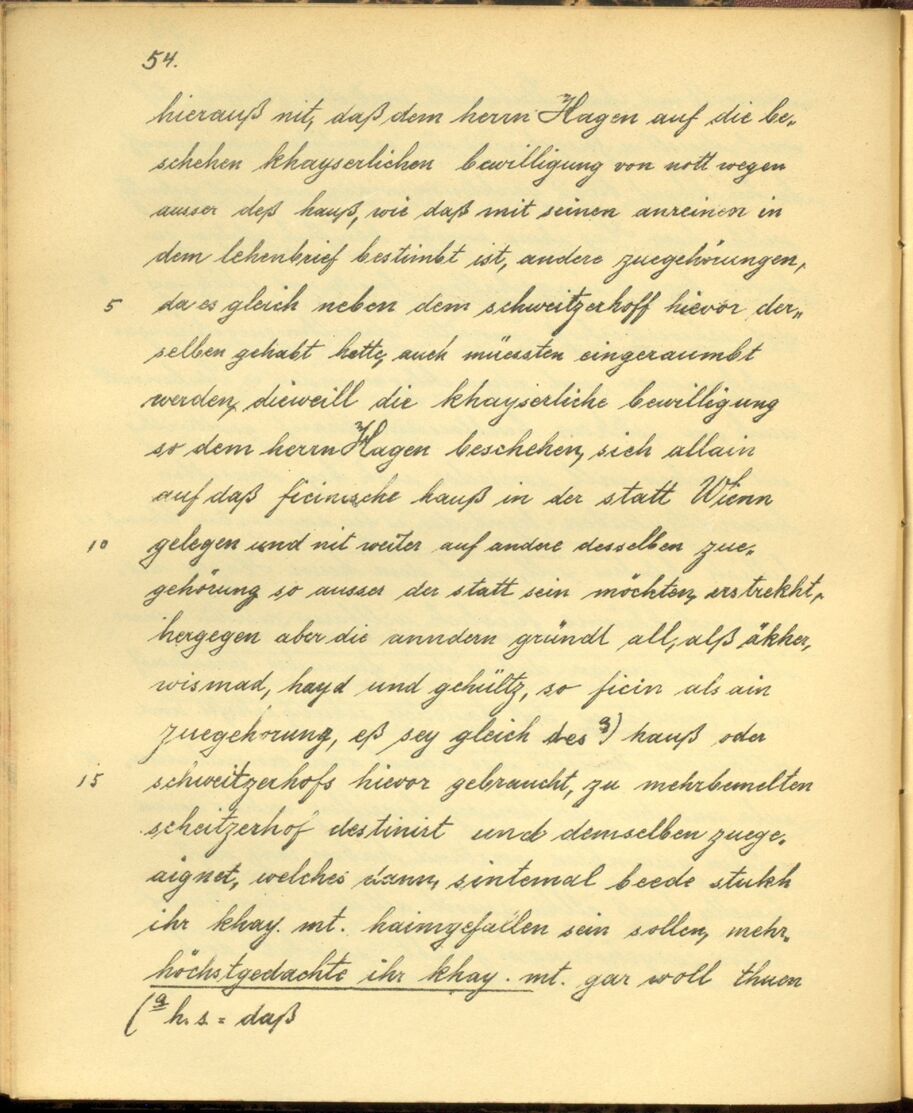 54.
hierauß nit, daß dem herrn Hagen auf die be„
schehen khayserlichen bewilligung von nott wegen
ausser deß hauß, wie daß mit seinen anreinen in
dem lehenbrief bestimbt ist, andere zuegehörungen,
5 da es gleich neben dem schweitzerhoff hievor der„
selben gehabt hette, auch müessten eingeraumbt
werden, dieweill die khayserliche bewilligung
so dem herrn Hagen beschehen, sich allain
auf daß ficinische hauß in der statt Wienn
10 gelegen und nit weiter auf andere desselben zue„
gehörung so ausser der statt sein möchten, erstrekht,
hergegen aber die anndern gründt all, alß äkher,
wismad, hayd und gehültz, so ficin als ain
zuegehorung, eß sey gleich des a) hauß oder
15 schweitzerhofs hievor gebraucht, zu mehrbemelten
scheitzerhof destinirt und demselben zuege„
aignet, welches dann, sintemal beede stukh
ihr khay. mt. haimgefallen sein sollen, mehr„
höchstgedachte ihr khay. mt. gar woll thuen
(a h.s. = daß